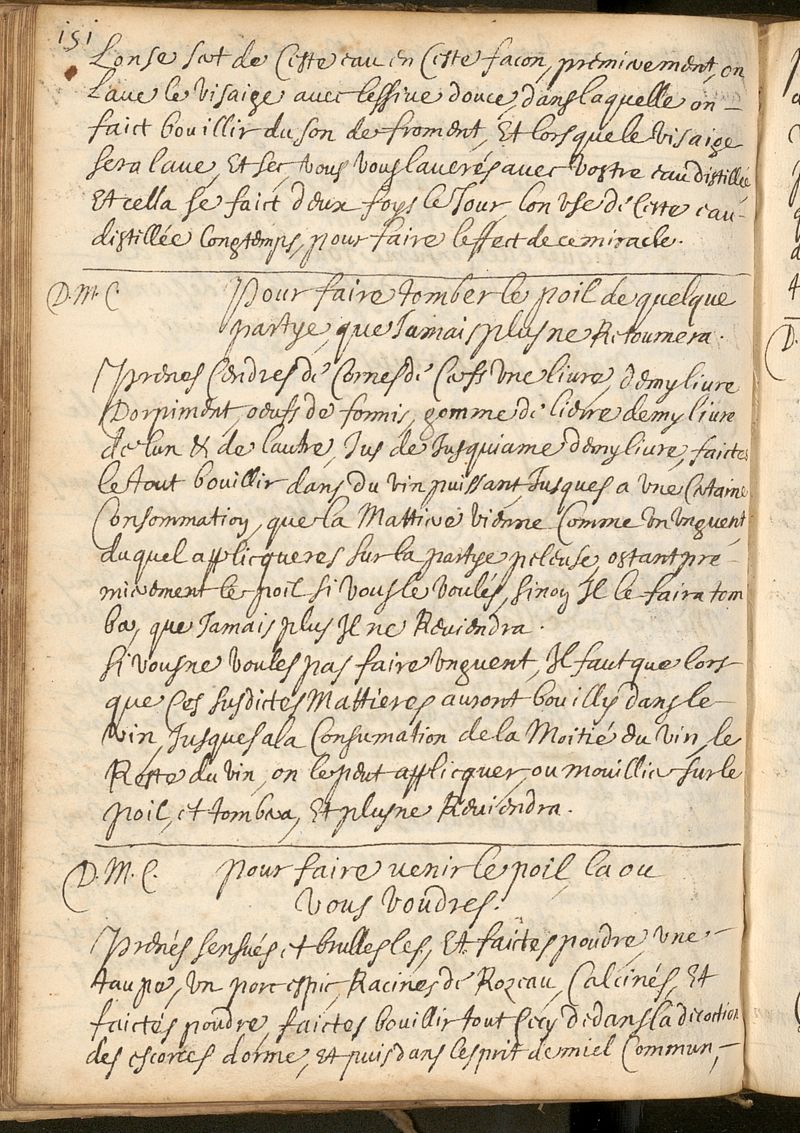 151
Lonse sert de Ceste eau en Ceste facon, premierement, on
Laue le visaige auec lessiue douce, dans laquelle on
faict bouillir du son de froment, Et lors que le visaige
sera laue, Et sec, vous vous lauerés auec vostre eau distillée
Et cella se faict deux foys le Jour, lon vse de Ceste eau
distillée Longtemps, pour faire leffect de ce miracle.
D. M. C. Pour faire tomber le poil de quelque
partye, que Jamais plus ne Retournera.
Prenes Cendres de Cornes de Cerfs vne liure, demy liure
Dorpiment, oeufs de formis, gomme de lierre demy liure
de lun & de lautre, Jus de Jusquiame demy liure, faictes
le tout bouillir dans du vin puissant, Jusques a vne Certaine
Consommation, que la Mattiere vienne Comme vn vnguent,
duquel applicqueres sur la partye peleuse, ostant pre-
mierement le poil si vous le voulés, sinon Il le faira tom
ber, que Jamais plus Il ne Reuiendra.
Si vous ne voules pas faire vnguent, Il faut que lors
que Ces susdictes Mattieres auront bouilly dans le
vin, Jusques a la Consumation de la Moitié du vin, le
Reste du vin, on le peut applicquer, ou mouillier sur le
poil, et tombera, Et plus ne Reuiendra.
D. M. C. Pour faire uenir le poil, la ou
vous voudres.
Prenés sensués et brulles les, Et faictes poudre, vne
taupe, vn porc espic, Racines de Rozeau, Calcinés, Et
faictés poudre, faictes bouillir tout Cecy dedans la decoction
des escorces dorme, Et puis dans lesprit de miel Commun,